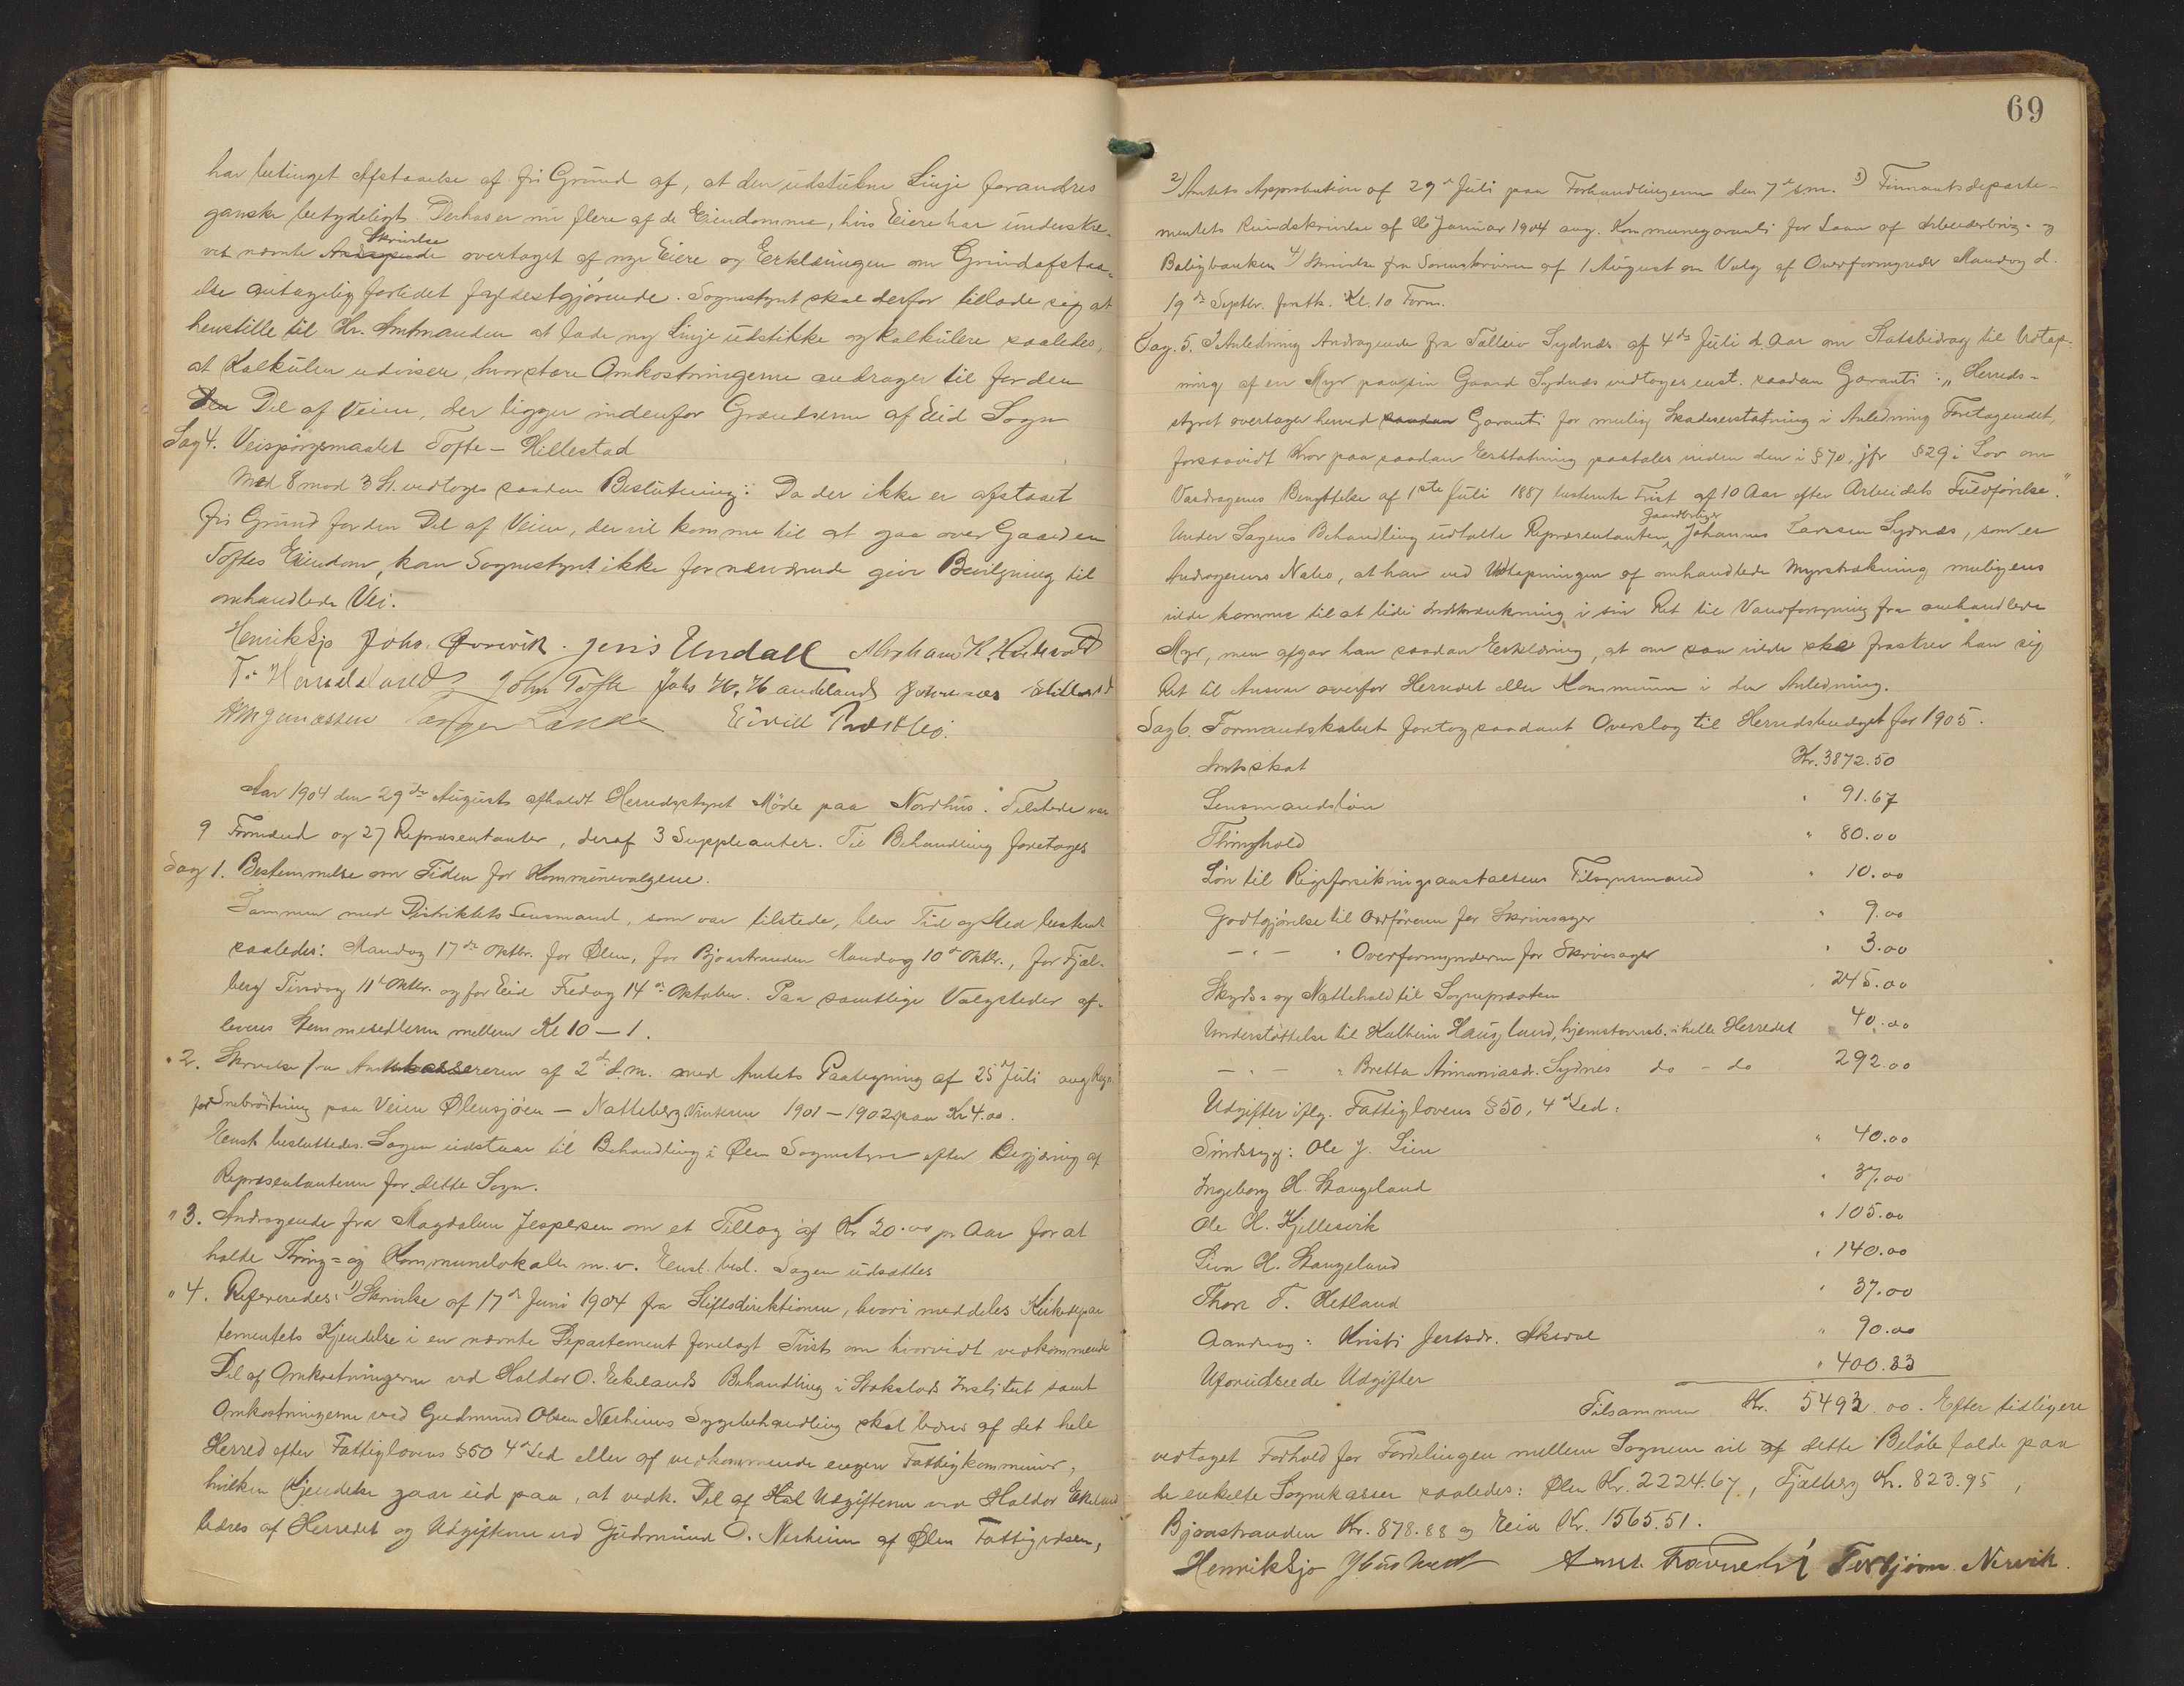 har betinget Afstaaelse af fri Grund af, at den udstukne Linje forandres
ganske betydeligt. Derhos er nu flere af de Eiendomme, hvis Eiere har underskre-
Skrivelse
vet nævnte overtaget af nye Eiere og Erklæringen om Grundafstaa-
else antagelig forledet fyldestgjørende. Sognestyret skal derfor tillade sig at
henstille til Hr. Amtmanden at lade ny Linje udstikke og kalkulere saaledes,
at Kalkülen udviser, hvor store Omkostningerne andrager til for den
Del af Veien, der ligger indenfor Grændserne af Eid Sogn
Sag 4. Veispørgsmaalet Tofte - Hillestad
Med 8 mod 3 St. vedtoges saadan Beslutning: Da der ikke er afstaaet
fri Grund for den Del af Veien, der vil komme til at gaa over Gaarden
Toftes Eiendom, kan Sognestyret ikke for nærværende give Bevilgning til
omhandlede Vei.
Henrik Sjo Johs. Qvervik. Jens Undall Abraham K.
T. Haaeland John Tofte Johs H. Haudeland
Eivill
Aar 1904 den 29de August afholdt Herredsstyret Møde paa Nordhus. Tilstede var
9 Formænd og 27 Repræsentanter, deraf 3 Suppleanter. Til Behandling foretoges
Sag 1. Bestemmelse om Tiden for Kommünevalgene.
Sammen med Distriktets Lensmand, som var tilstede, blev Tid og Sted bestemt
saaledes: Mandag 17de Oktbr. for Ølen, for Bjoastranden Mandag 10de Oktbr., for Fjel-
berg Tirsdag 11te Oktbr. og for Eid Fredag 14de Oktober. Paa samtlige Valgsteder af-
leveres Stemmesedlerne mellem Kl 10 - 1.
" 2. Skrivelse fra Amtskassereren af 2den d.m. med Amtets Paategning af 25de Juli ang Regn.
for Snebrøitning paa Veien Ølensjøen - Natteberg Vinteren 1901 - 1902 paa Kr 4.00.
Eenst. besluttedes. Sagen udstaar til Behandling i Ølen Sognestyre efter Begjæring af
Repræsentanterne for dette Sogn.
" 3. Andragende fra Magdalene Jespersen om et Tillæg af Kr 20.00 pr Aar for at
holde Thing- og Kommunelokale m.v. Eenst. besl. Sagen udsættes
" 4. Refereredes: 1) Skrivelse af 17de Juni 1904 fra Stiftsdirektionen, hvori meddeles Kirkedepar
tementets Kjendelse i en nævnte Departement forelagt Tvist om hvorvidt vedkommende
Del af Omkostningerne ved Haldor O. Eikelands Behandling i Institut samt
Omkostningerne ved Gudmund Olsen Nerheims Sygebehandling skal bæres af det hele
Herred efter Fattiglovens § 50 4de Led eller af vedkommende engere Fattigkommune,
hvilken Kjendelse gaar ud paa, at vedk. Del af Udgifterne ved Haldor Eikeland
bæres af Herredet og Udgifterne ved Gudmund O. Nerheim af Ølen Fattigvæsen,
69
2) Amtets Approbation af 29de Juli paa Forhandlingerne den 7de s.m. 3) Finantsdeparte-
mentets Rundskrivelse af 26 Januar 1904 ang. Kommunegaranti for Laan af Arbeiderbrug- og
Boligbanken 4) Skrivelse fra Sorenskriveren af 1 August om Valg af Overformynder Mandag d.
19de Septbr. førstk. Kl. 10 Form.
Sag. 5. I Anledning Andragende fra Tallein Sydnæs af 4de Juli d. Aar om Statsbidrag til Udtap-
ning af en Myr paa sin Gaard Sydnæs vedtoges enst. saadan Garanti: "Herreds-
styret overtager herved Garanti for mulig Skadeserstatning i Anledning Foretagendet,
forsaavidt Krav paa saadan Erstatning paatales inden den i § 70, jfr § 29 i Lov om
Vasdragenes Benyttelse af 1ste Juli 1887 bestemte Frist af 10 Aar efter Arbeidets Fuldførelse."
Gaardbruger
Under Sagens Behandling udtalte Repræsentanten Johannes Larsen Sydnæs, som er
Andragerens Nabo, at han ved Udtapningen af omhandlede Myrstrækning muligens
vilde komme til at lide Indskrænkning i sin Ret til Vandforsyning fra omhandlede
Myr, men afgav han saadan Erklæring, at om saa vilde ske frasiger han sig
Ret til Ansvar overfor Herredet eller Kommunen i den Anledning.
Sag 6. Formandskabet foretog saadant Overslag til Herredsbudget for 1905.
Amtsskat Kr. 3872.50
Lensmandsløn " 91.67
Thinghold " 80.00
Løn til Rigsforsikringsanstaltens Tilsynsmand " 10.00
Godtgjørelse til Ordføreren for Skrivesager " 9.00
- " - " Overformynderen for Skrivesager " 3.00
Skyds- og Nattehold til Sognepræsten " 245.00
Understøttelse til Kathrine Haugland, hjemstavnsb. i hele Herredet " 40.00
- " - " Bretta Annaniasdr. Sydnes do - do 292.00
Udgifter iflg. Fattiglovens § 50, 4de Led:
Sindssyg: Ole J. Lien " 40.00
Ingeborg H. Stangeland " 37.00
Ole H. Kjellesvik " 105.00
Siva H. Stangeland " 140.00
Thore T. Hetland " 37.00
Aandsvag: Kristi Jertsdr. " 90.00
Uforudseede Udgifter " 400.83
Tilsammen Kr. 5493.00. Efter tidligere
vedtaget Forhold for Fordelingen mellem Sognene vil af dette Beløb falde paa
de enkelte Sognekasser saaledes: Ølen Kr. 2224.67, Fjelberg Kr. 823.95,
Bjoastranden Kr. 878.88 og Eid Kr. 1565.51.
Henrik Sjo Torbjørn Nervik.